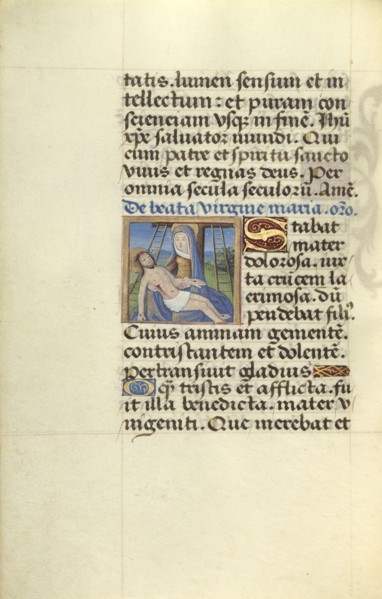 tatis. lumen sensuum et in
tellectum: et puram con
scienciam vsq; in finē. Ihū
xp̄e saluator mundi. Qui
cum patre et spiritu sancto
viuis et regnas deus. Per
omnia secula seculorū. Amē.
De beata virgine maria. oŕo.
Stabat
mater
dolorosa. iux
ta crucem la
crimosa. dū
pendebat fili⁹.
Cuius animam gementē.
contristantem et dolentē.
Pertransiuit gladius
O q̄ tristis et afflicta. fu
it illa benedicta. mater v
nigeniti. Que merebat et